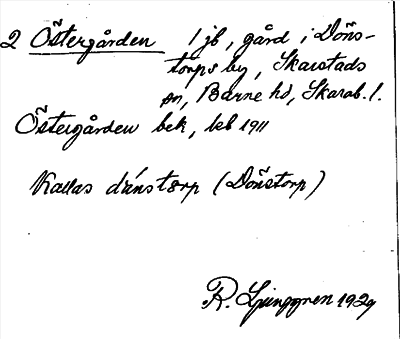 2 Östergården 1 jb, gård i Döns-
torps by, Skarstads
sn, Barne hd, Skarab. l.
Östergården bek, leb 1911
Kallas dúnstɐrp (Dönstorp)
R. Ljunggren 1929